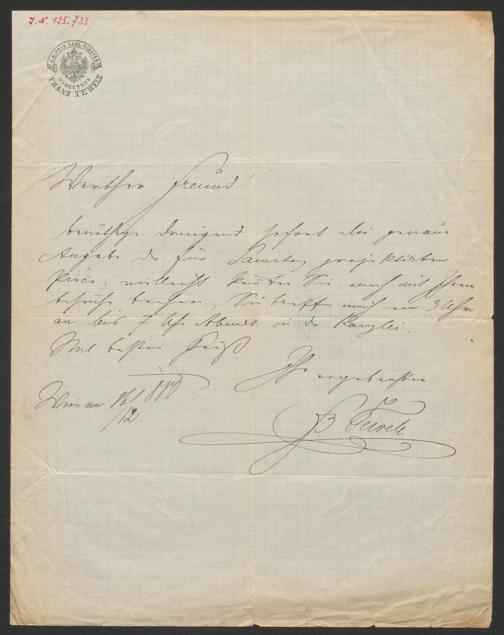 J. N. 125.733
K.K. PRIV. CARL-THEATER
DIRECTION
FRANZ TEWELE
Werther Freund!
benöthige dringend sofort die genaue
Angabe der für Samstag projektirten
Pièce; vielleicht Sie mich mit Ihrem
Besuche, Sie treffen mich von 3 Uhr
an bis 7 Uhr Abends in der Kanzlei.
Mit bestem Gruß
Ihr ergebenster
Wien am
/12
Tewele